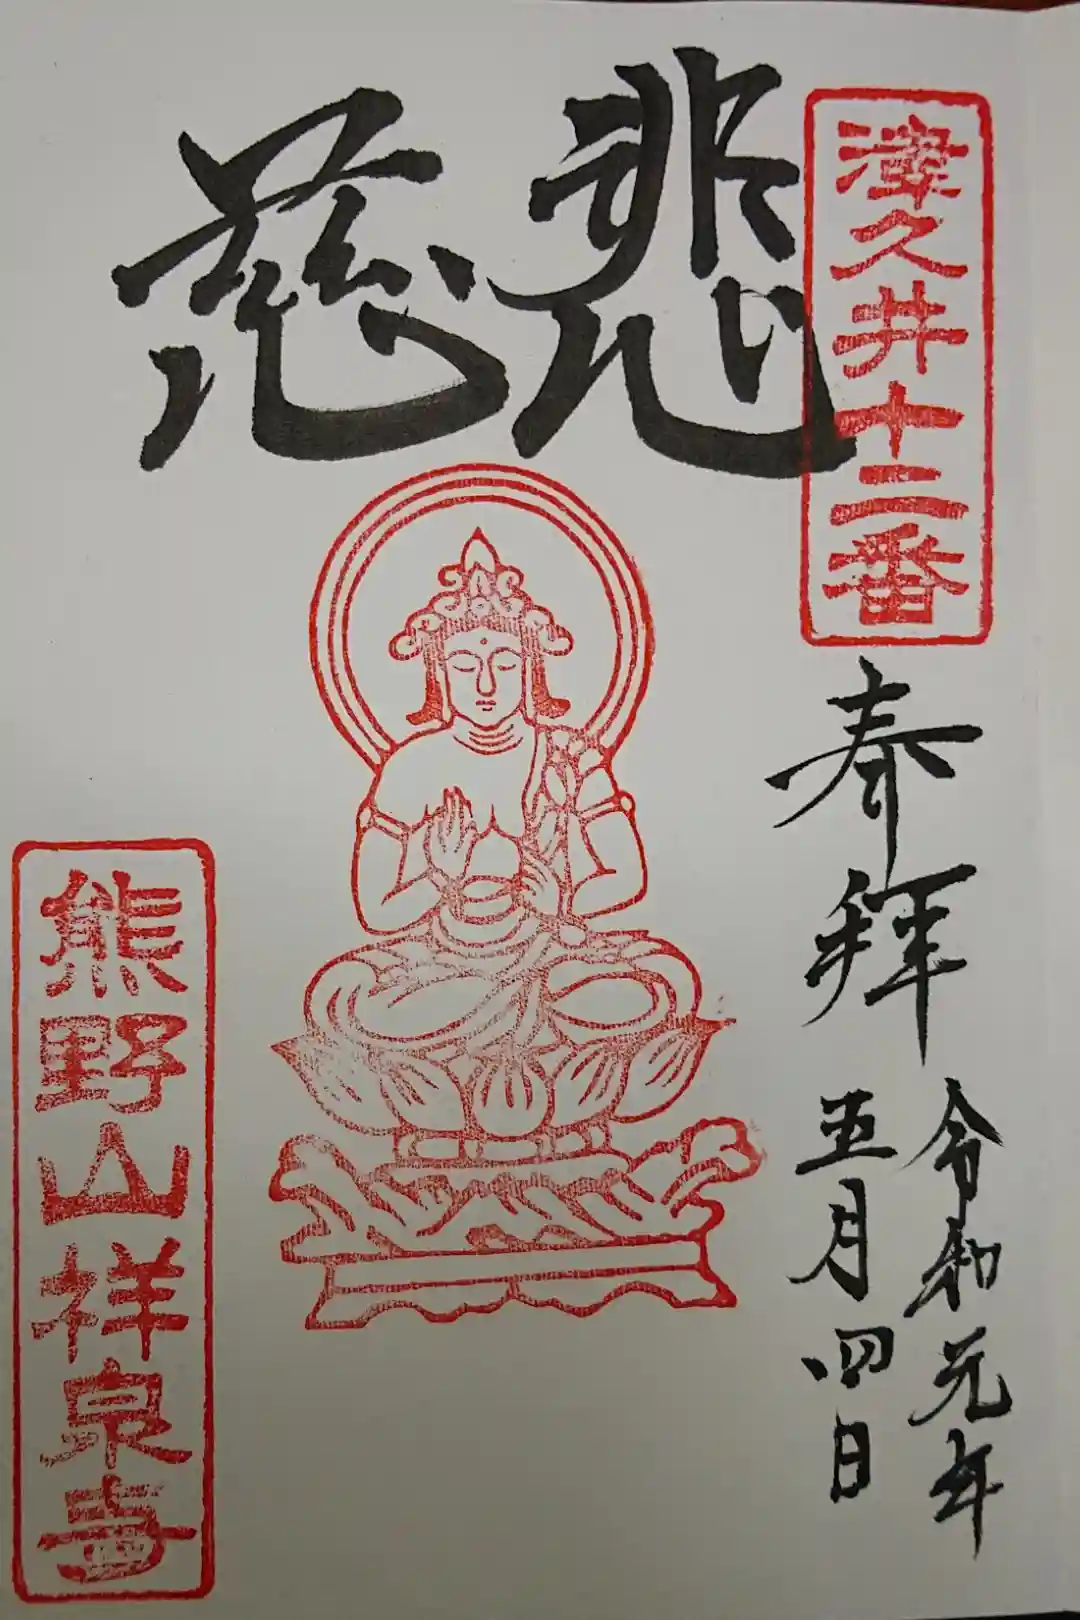 津久井十二番
奉拜
令和元年
五月四日
悲慈
熊野山祥泉寺